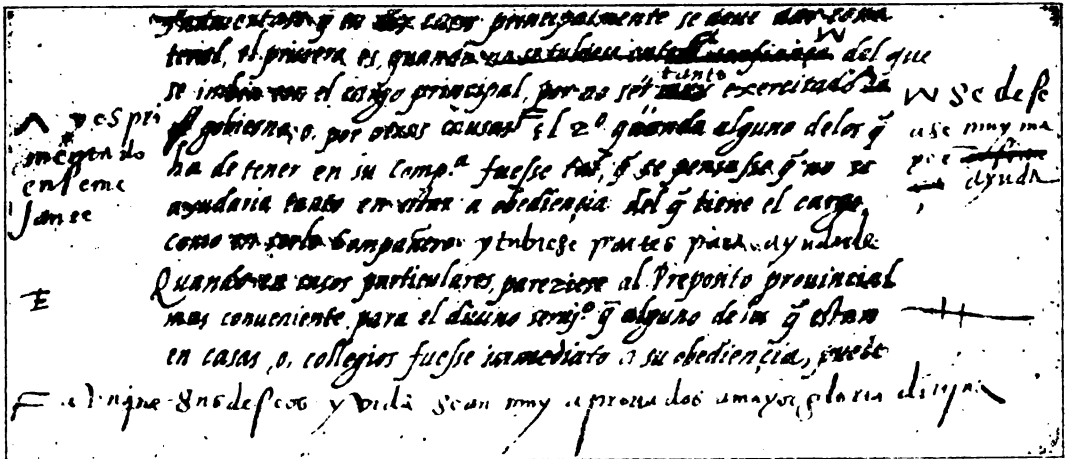 y en casos principalmente se deue dar cola
teral, el primero es, quando del que
se imbia con el cargo principal, por no ser tanto exercitado
gobierno, o, por otras causas El 2º quando alguno delos q̄
ha de tener en su Comp.ª fuesse tal, q̄ se pensasse q̄ no se
ayudaria tanto en estar a obediençia del q̄ tiene el cargo
como en serle Compañero y tubiese partes para ayudarle
Quando en casos particulares, pareziese al Preposito prouincial
mas conueniente para el diuino seruj.º q̄ alguno de los q̄ estan
en casas, o, collegios fuesse inmediato a su obediençia, puede
aunque sus deseos y vida sean muy aprouados a mayor gloria diujna
y espri
mentado
en seme
jante
se dese
ase muy ma
yor
ayuda